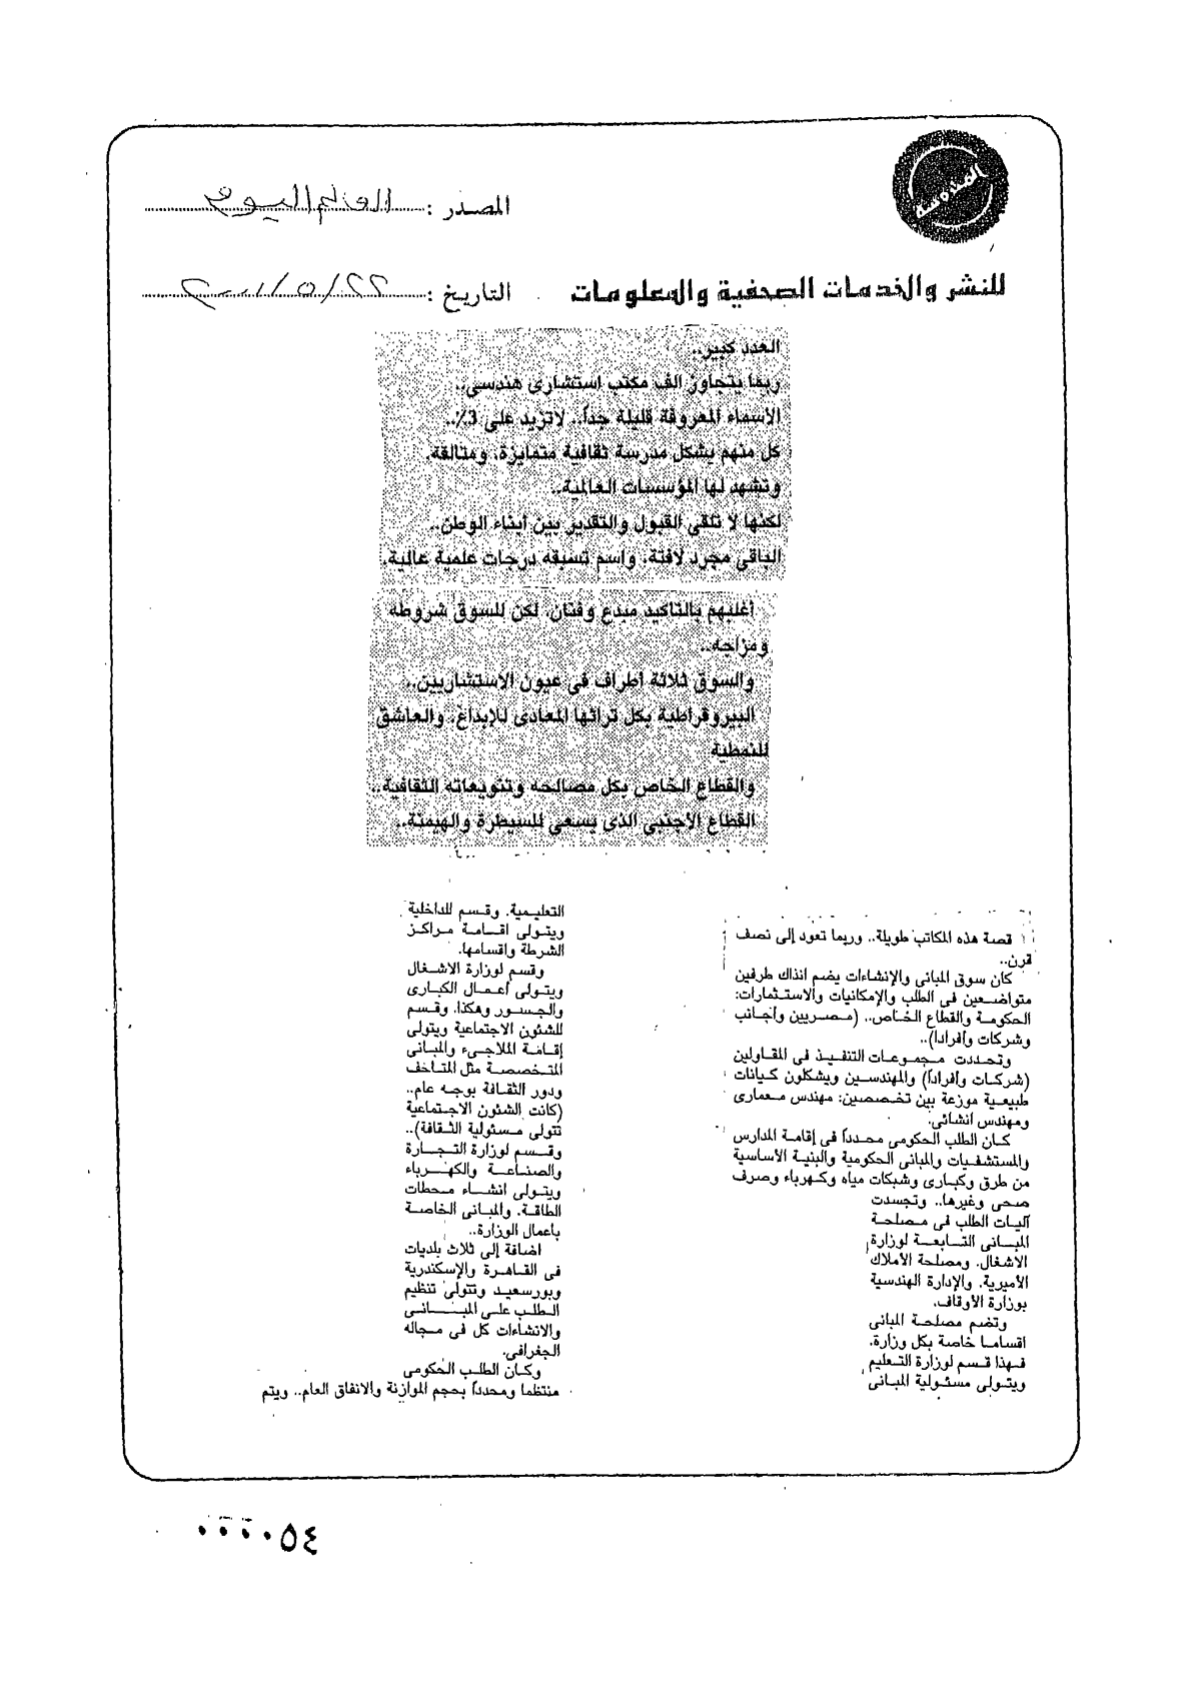 الخلاصة
للنشر والخدمات الصحفية والمعلومات
المصدر : العالم اليوم
التاريخ : ٢٢/٥/٢٠٠١
العدد كبير..
ربما يتجاوز الف مكتب استشارى هندسى..
الأسماء المعروفة قليلة جداً.. لاتزيد على 3٪..
كل منهم يشكل مدرسة ثقافية متمايزة، ومتالقة.
وتشهد لها المؤسسات العالمية..
لكنها لا تلقى القبول والتقدير بين أبناء الوطن..
الباقى مجرد لافتة، واسم تسبقه درجات علمية عالية.
أغلبهم بالتاكيد مبدع وفنان. لكن للسوق شروطه
ومزاجه..
والسوق ثلاثة اطراف فى عيون الاستشاريين..
البيروقراطية بكل تراثها المعادى للإبداع، والعاشق
للنمطية
والقطاع الخاص بكل مصالحه وتنويعاته الثقافية..
القطاع الأجنبى الذى يسعى للسيطرة والهيمنة..
قصة هذه المكاتب طويلة.. وربما تعود إلى نصف
قرن..
كان سوق المبانى والإنشاءات يضم انذاك طرفين
متواضعين فى الطلب والإمكانيات والاستثمارات:
الحكومة والقطاع الخاص.. (مصريين وأجانب
وشركات وأفراداً)..
وتحددت مجموعات التنفيذ فى المقاولين
(شركات وأفراداً) والمهندسين ويشكلون كيانات
طبيعية موزعة بين تخصصين: مهندس معمارى
ومهندس انشائى.
كان الطلب الحكومى محدداً فى إقامة المدارس
والمستشفيات والمبانى الحكومية والبنية الأساسية
من طرق وكبارى وشبكات مياه وكهرباء وصرف
صحى وغيرها.. وتجسدت
آليات الطلب فى مصلحة
المبانى التابعة لوزارة
الاشغال. ومصلحة الأملاك
الأميرية. والإدارة الهندسية
بوزارة الأوقاف.
وتضم مصلحة المبانى
اقساما خاصة بكل وزارة.
فهذا قسم لوزارة التعليم
ويتولى مسئولية المبانى
التعليمية. وقسم للداخلية
ويتولى اقامة مراكز
الشرطة واقسامها.
وقسم لوزارة الاشغال
ويتولى أعمال الكبارى
والجسور وهكذا. وقسم
للشئون الاجتماعية ويتولى
إقامة الملاجىء والمبانى
المتخصصة مثل المتاحف
ودور الثقافة بوجه عام..
(كانت الشئون الاجتماعية
تتولى مسئولية الثقافة)..
وقسم لوزارة التجارة
والصناعة والكهرباء
ويتولى انشاء محطات
الطاقة. والمبانى الخاصة
بأعمال الوزارة..
اضافة إلى ثلاث بلديات
فى القاهرة والإسكندرية
وبورسعيد وتتولى تنظيم
الطلب على المبانى
والانشاءات كل فى مجاله
الجغرافى.
وكان الطلب الحكومى
منتظما ومحدداً بحجم الموازنة والانفاق العام.. ويتم
٠٠٠٠٥٤